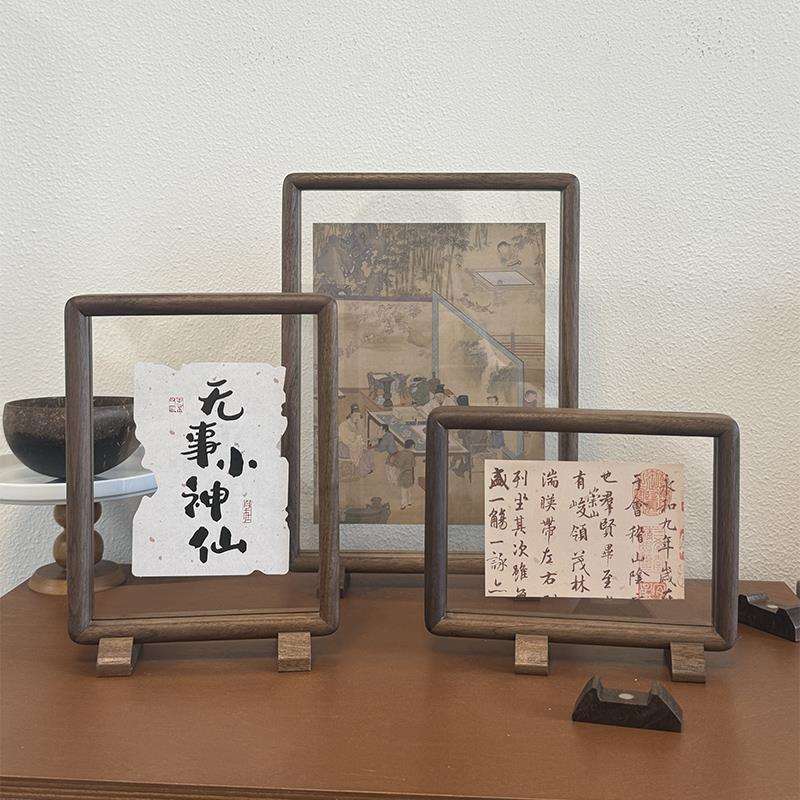 无事小神仙
永和九年歲在
于會稽山陰
也羣賢畢至
有崇山峻領茂林
湍暎帶左右
列坐其次雖無
盛一觴一詠亦